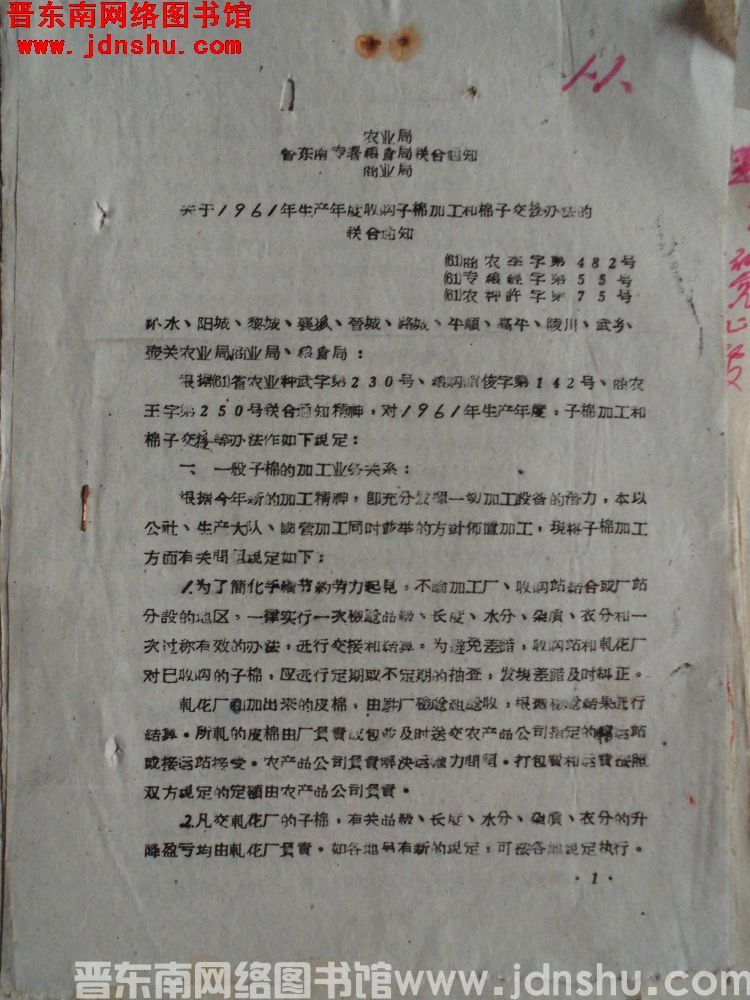 晋东南网络图书馆
www.jdnshu.com
农业局
晋东南专署粮食局联合通知
商业局
关于1961年生产年度收购子棉加工和棉子交接办法的
联合通知
(61)商农 字第482号
(61)专粮经字第55号
(61)农种許字第75号
沁水、阳城、黎城、襄垣、晉城、潞城、平順、高平、陵川、武乡、
壶关农业局商业局、粮食局：
根据(61)省农业种武字第230号、粮购 俊字第142号、商农
王字第250号联合通知精神，对1961年生产年度，子棉加工和
棉子交接等办法作如下規定：
一、一般子棉的加工业务关系：
根据今年新的加工精神，即充分发揮一切加工設备的潜力，本以
公社、生产大队、國营加工同时並举的方針佈置加工，現将子棉加工
方面有关問題規定如下：
1.为了簡化手續节約劳力起見，不論加工厂、收购站結合或厂站
分設的地区，一律实行一次檢驗品級、长度、水分、杂质、衣分和一
次过称有效的办法，进行交接和結算。为避免差錯，收购站和軋花厂
对已收购的子棉，应进行定期或不定期的抽查，发現差錯及时糾正。
軋花厂 加出來的皮棉，由駐厂檢驗組驗收，根据檢驗結果进行
結算。所軋的皮棉由厂負責成包並及时送交农产品公司指定的 运站
或接运站接受。农产品公司負責解决运輸力問題。打包費和运費按照
双方規定的定額由农产品公司負責。
2.凡交軋花厂的子棉，有关品級、长度、水分、杂质、衣分的升
降盈亏均由軋花厂負責。如各地另有新的規定，可按各地規定执行。
·1·
晋东南网络图书馆www.jdnshu.com